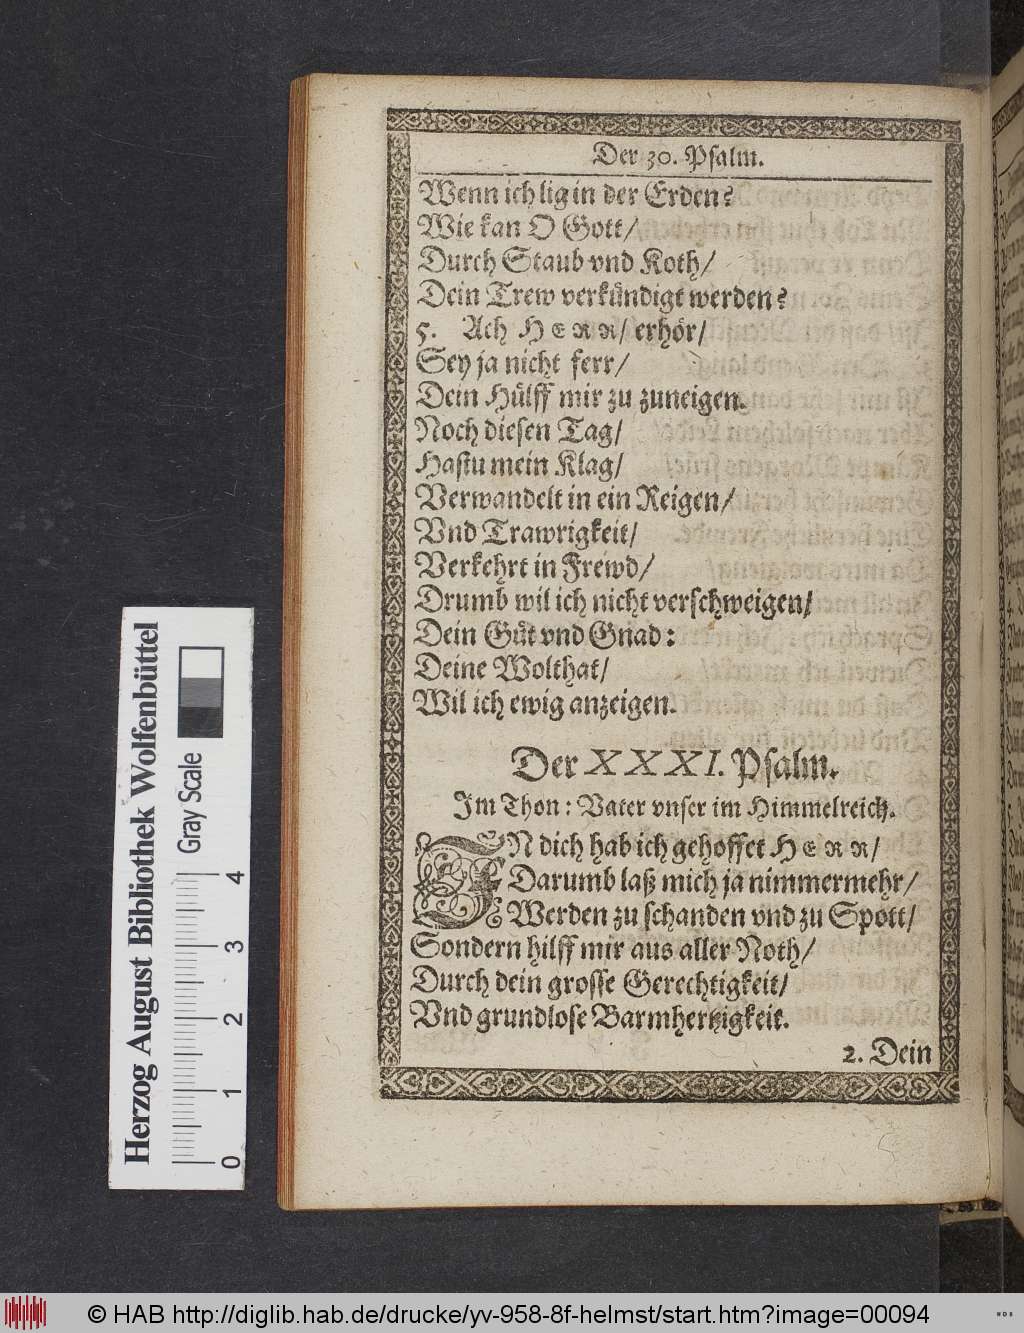 Der 30. Psalm.
Wenn ich lig in der Erden?
Wie kan O Gott/
Durch Staub vnd Koth/
Dein Trew verkündigt werden?
5. Ach HERR/ erhör/
Sey ja nicht ferr/
Dein Hülff mir zu zuneigen.
Noch diesen Tag/
Hastu mein Klag/
Verwandelt in ein Reigen/
Vnd Trawrigkeit/
Verkehrt in Frewd/
Drumb wil ich nicht verschweigen/
Dein Güt vnd Gnad:
Deine Wolthat/
Wil ich ewig anzeigen.
Der XXXI. Psalm.
Im Thon: Vater vnser im Himmelreich.
IN dich hab ich gehoffet HERR/
Darumb laß mich ja nimmermehr/
Werden zu schanden vnd zu Spott/
Sondern hilff mir aus aller Noth/
Durch dein grosse Gerechtigkeit/
Vnd grundlose Barmhertzigkeit.
2. Dein
Herzog August Bibliothek Wolfenbüttel
Gray Scale
0 1 2 3 4
© HAB http://diglib.hab.de/drucke/yv-958-8f-helmst/start.htm?image=00094